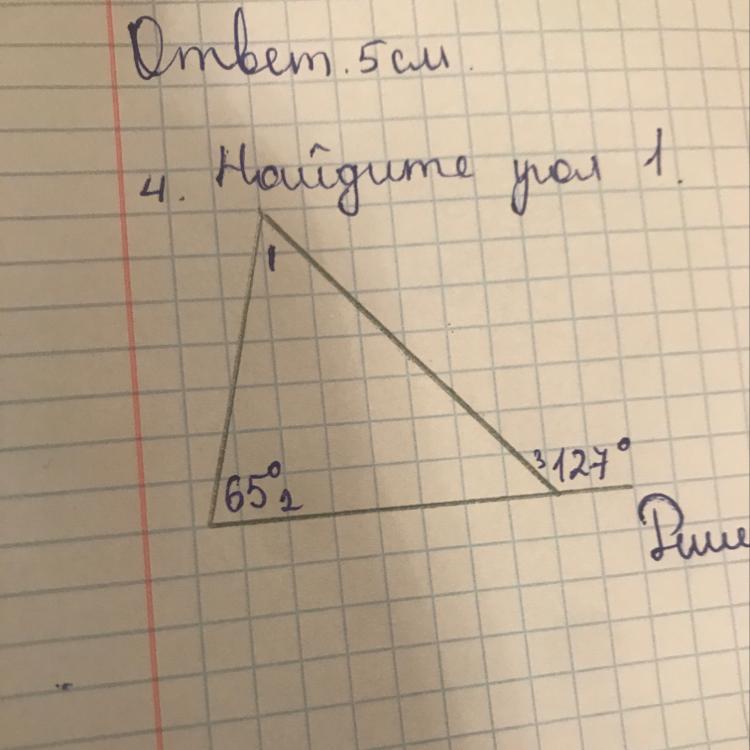 Ответ. 5 см.
4. Найдите угол 1.
1
3 127°
65° 2